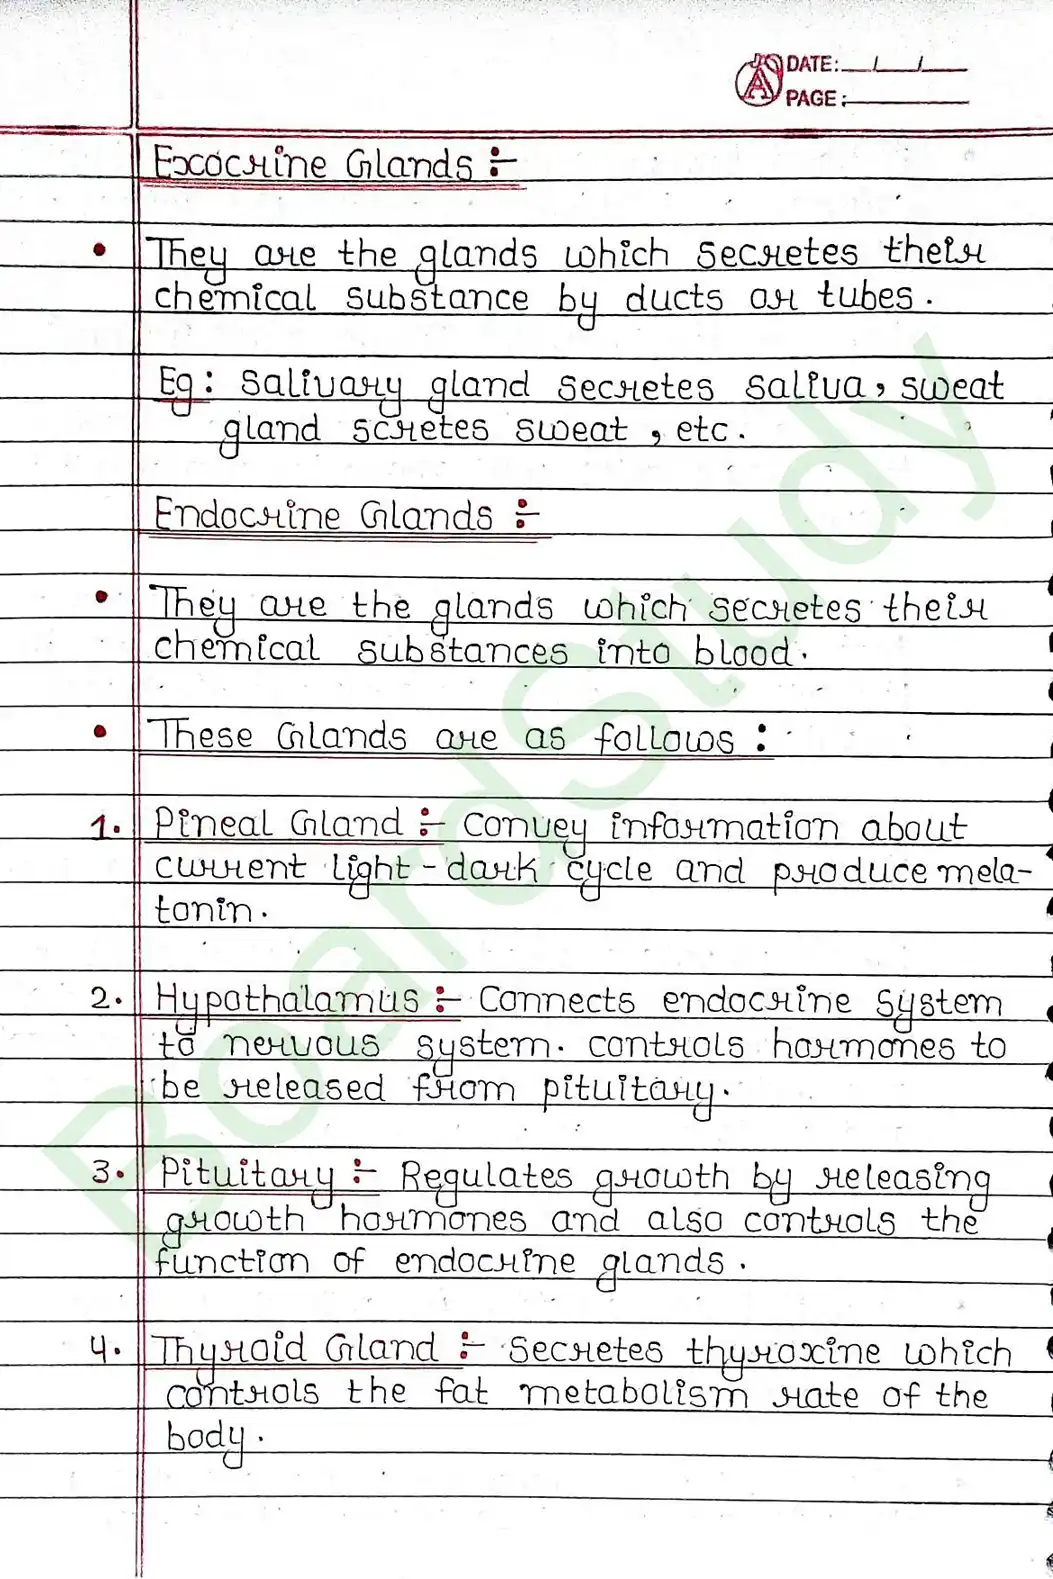 DATE: / /
PAGE:
Exocrine Glands :-
• They are the glands which secretes their
chemical substance by ducts or tubes.
Eg: Salivary gland secretes saliva, sweat
gland scretes sweat, etc.
Endocrine Glands :-
• They are the glands which secretes their
chemical substances into blood.
• These Glands are as follows :
1. Pineal Gland :- Convey information about
current light-dark cycle and produce mela-
tonin.
2. Hypothalamus :- Connects endocrine system
to nervous system. controls hormones to
be released from pituitary.
3. Pituitary :- Regulates growth by releasing
growth hormones and also controls the
function of endocrine glands.
4. Thyroid Gland :- Secretes thyroxine which
controls the fat metabolism rate of the
body.
BoardStudy